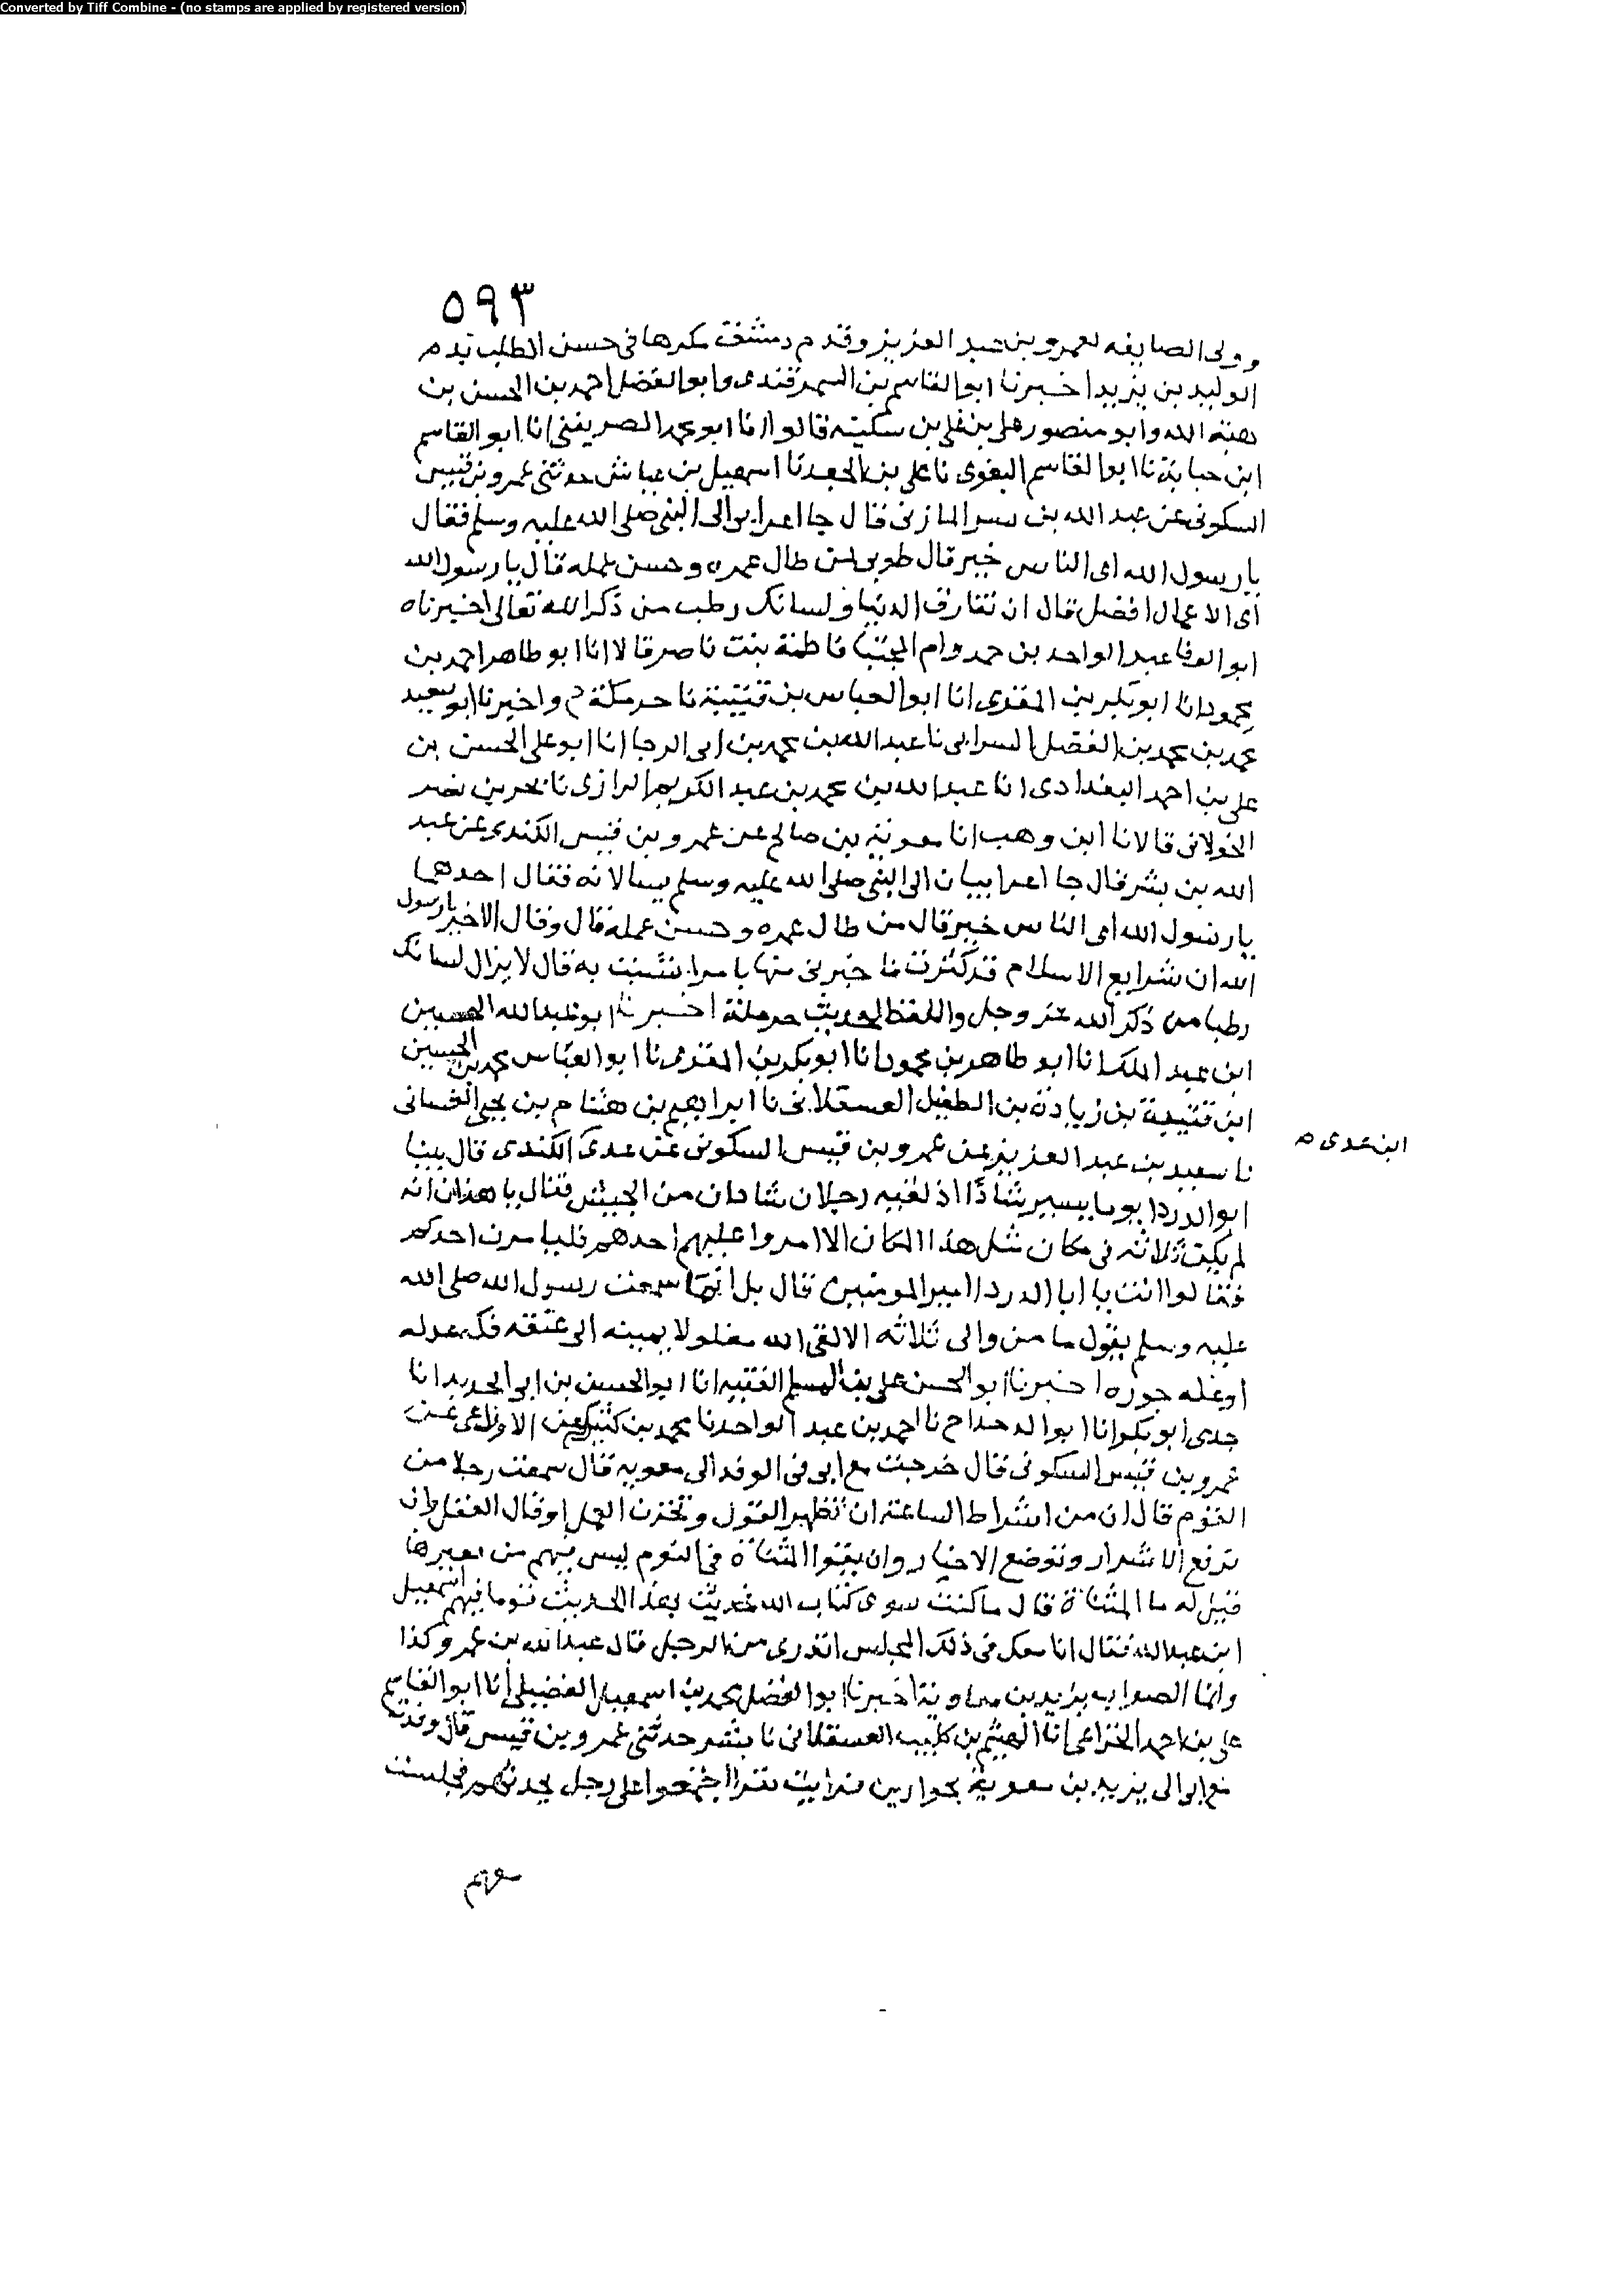 Converted by Tiff Combine - (no stamps are applied by registered version)
٥٩٣
وولى الصايفه لعمرو بن عبد العزيز وقدم دمشق مكرها في حسن الطلب بدم
الوليد بن يزيد اخبرنا ابو القاسم بن السمرقندى وابو الفضل احمد بن الحسن بن
هبته الله وابو منصور على بن على بن سكينه قالوا انا ابو محمد الصريفنى انا ابو القاسم
ابن حبابة نا ابو القاسم البغوى نا على بن الجعد نا اسمعيل بن عياش حدثنى عمرو بن قيس
السكونى عن عبد الله بن بسر المازنى قال جا اعرابى الى النبى صلى الله عليه وسلم فقال
يا رسول الله اى الناس خير قال طوبى لمن طال عمره وحسن عمله قال يا رسول الله
اى الاعمال افضل قال ان تفارق الدنيا ولسانك رطب من ذكر الله تعالى اخبرناه
ابو الوفا عبد الواحد بن حمد وام المجتبا فاطمة بنت ناصر قالا انا ابو طاهر احمد بن
محمود انا ابو بكر بن المقرى انا ابو العباس بن قتيبة نا حرملة ح واخبرنا ابو سعيد
محمد بن محمد بن الفضل نا عبد الله بن محمد بن ابى الرجا انا ابو على الحسن بن
على بن احمد البغدادى انا عبد الله بن محمد بن عبد الكريم الرازى نا بحر بن نصر
الخولانى قالا نا ابن وهب انا معوية بن صالح عن عمرو بن قيس الكندى عن عبد
الله بن بشر قال جا اعرابيان الى النبى صلى الله عليه وسلم يسالانه فقال احدهما
يا رسول الله اى الناس خير قال من طال عمره وحسن عمله قال وقال الاخر يا رسول
الله ان شرايع الاسلام قد كثرت فاخبرنى منها بامر اتشبث به قال لا يزال لسانك
رطبا من ذكر الله عز وجل واللفظ لحديث حرملة اخبرنا ابو عبد الله الحسين
ابن عبد الملك انا ابو طاهر بن محمود انا ابو بكر بن المقرى نا ابو العباس محمد بن الحسين
ابن قتيبة بن زيادة بن الطفيل العسقلانى نا ابراهيم بن هشام بن يحيى الغسانى
نا سعيد بن عبد العزيز عن عمرو بن قيس السكونى عن عدى الكندى قال بينا
ابن عدى م
ابو الدردا يوما يسير شاذا اذ لقيه رجلان شاذان من الجيش فقال يا هذان انه
لم يكن ثلاثه فى مكان مثل هذا المكان الا امروا عليهم احدهم فليامرن احدكم
فقالوا انت يا ابا الدردا امير المومنين قال بل انتما سمعت رسول الله صلى الله
عليه وسلم يقول ما من والى ثلاثه الا لقى الله مغلولا يمينه الى عنقه فكه عدله
او غله جوره اخبرنا ابو الحسن على بن المسلم الفقيه انا ابو الحسين بن ابى الحديد انا
جدى ابو بكر انا ابو الدحداح نا احمد بن عبد الواحد نا محمد بن كثير عن الاوزاعى عن
عمرو بن قيس السكونى قال خرجت مع ابى فى الوفد الى معويه فقال سمعت رجلا من
القوم قال ان من اشراط الساعة ان تظهر القول وتخزن العمل او قال الفعل وان
ترفع الاشرار وتوضع الاخيار وان يقرا المثناة فى القوم ليس فيهم من يغيرها
فقيل له ما المثناة قال ما كتبت سوى كتاب الله فحدثت بهذا الحديث قوما فيهم اسمعيل
ابن عبد الله فقال انا معك فى ذلك المجلس اتدرى من الرجل قال عبد الله بن عمرو كذا
وانما الصواب يزيد بن معاوية اخبرنا ابو الفضل محمد بن اسمعيل الفضيلى انا ابو القاسم
على بن احمد الخزاعى انا الهيثم بن كليب العسقلانى نا بشر حدثنى عمرو بن قيس قال وفدت
مع ابى الى يزيد بن معوية بحوارين فرايت نفرا اجتمعوا على رجل يحدثهم فجلست